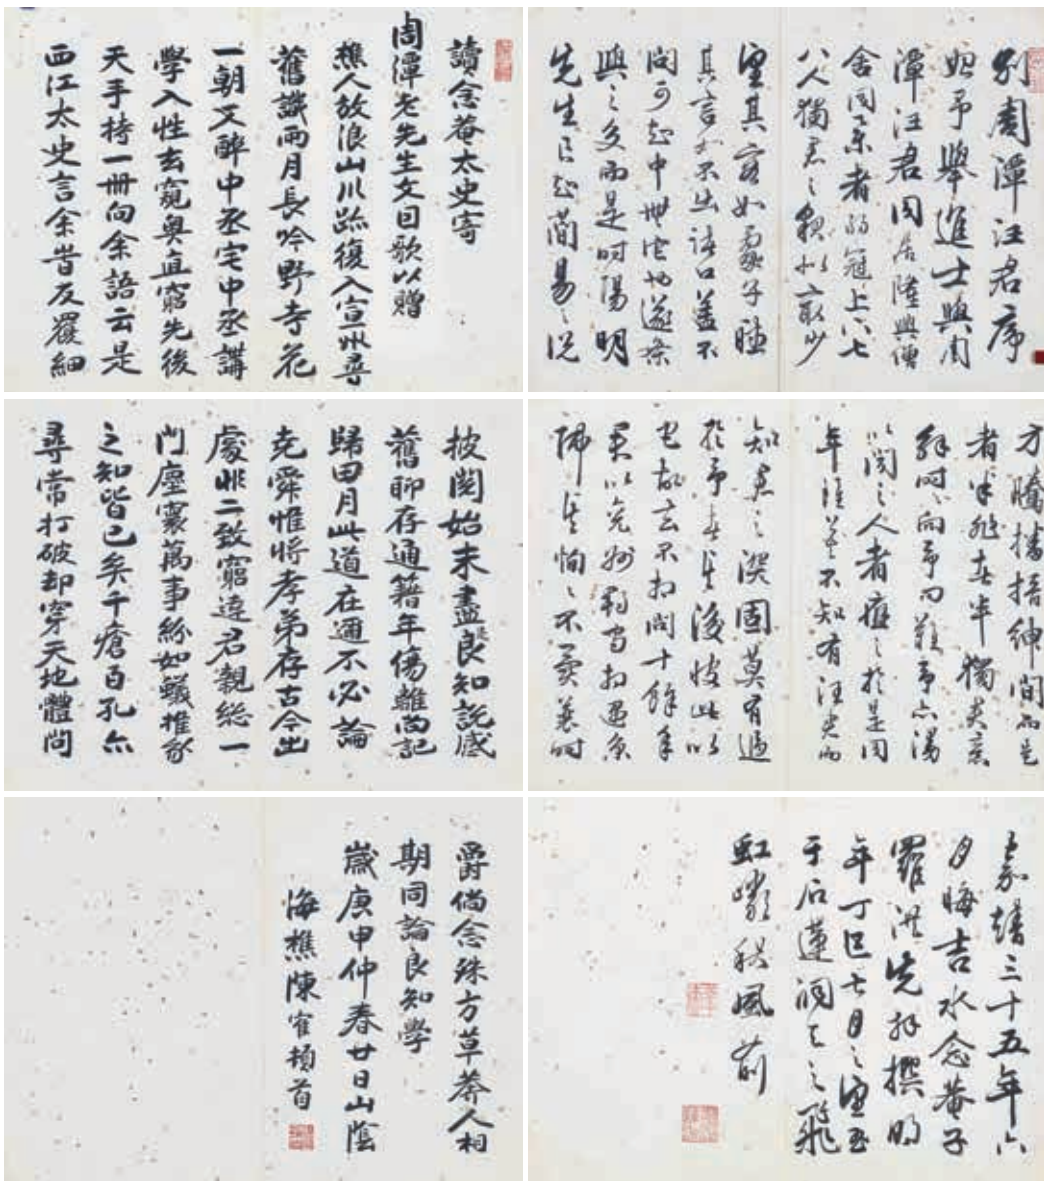 別周潭汪君序
始予舉進士與周
潭汪君同居隆興僧
舍同業者弱冠上下七
八人獨君之貌似最少
望其容如處子聽
其言如不出諸口蓋不
問可知中無它也遂
與之交而是時陽明
先生良知簡易之説
方騰播搢紳間而是
者半非者半獨君意
解時時向予問難予亦漫
以聞之人者應之於是同
年往往莫不知有汪君而
知君之深固莫有過
於予者其後彼此以
宅故去不相聞十餘年
君以兖州相遇京
師其恂恂不異曩時
嘉靖三十五年六
月晦吉水念菴子
羅洪先拜撰明
年丁巳七月之望書
于石蓮洞天之飛
虹巘秋風前
讀念菴太史寄
周潭老先生文因歌以贈
樵人放浪山川跡復入宣州尋
舊識兩月長吟野寺花
一朝又醉中丞宅中丞講
學入性玄窺奧直窮先後
天手持一冊向余語云是
西江太史言余昔反覆細
披閱始末盡良知説感
舊聊存通籍年傷離尚記
歸田月此道在通不必論
堯舜惟將孝弟存古今出
處非二致窮達君親總一
門塵寰萬事紛如蟻推
之知皆已矣千瘡百孔亦
尋常打破却穿天地體問
爵倘念殊方草莽人相
期同論良知學
歲庚申仲春廿日山陰
海樵陳寉頓首